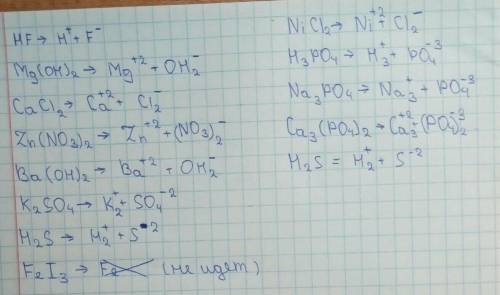 HF → H⁺ + F⁻
Mg(OH)₂ → Mg⁺² + OH₂⁻
CaCl₂ → Ca⁺² + Cl₂⁻
Zn(NO₃)₂ → Zn⁺² + (NO₃)₂⁻
Ba(OH)₂ → Ba⁺² + OH₂⁻
K₂SO₄ → K₂⁺ + SO₄⁻²
H₂S → H₂⁺ + S⁻²
FeI₃ → Fe (не идет)
NiCl₂ → Ni⁺² + Cl₂⁻
H₃PO₄ → H₃⁺ + PO₄⁻³
Na₃PO₄ → Na₃⁺ + PO₄⁻³
Ca₃(PO₄)₂ → Ca₃⁺² + (PO₄)₂⁻³
H₂S = H₂⁺ + S⁻²